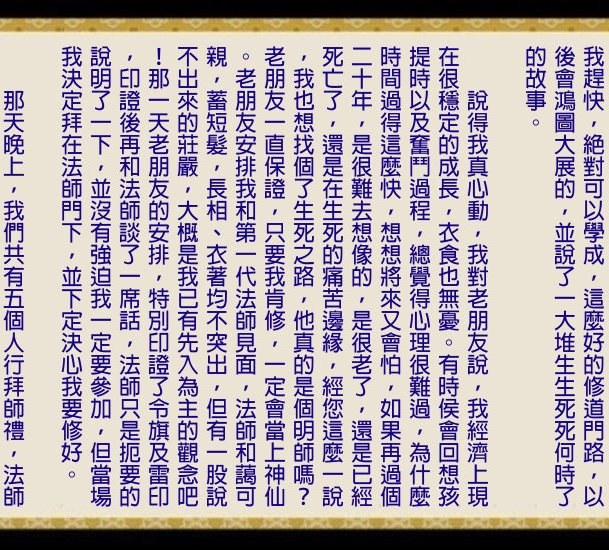 我趕快，絕對可以學成，這麼好的修道門路，以
後會鴻圖大展的，並說了一大堆生生死死何時了
的故事。
說得我真心動，我對老朋友說，我經濟上現
在很穩定的成長，衣食也無憂。有時侯會回想孩
提時以及奮鬥過程，總覺得心理很難過，為什麼
時間過得這麼快，想想將來又會怕，如果再過個
二十年，是很難去想像的，是很老了，還是已經
死亡了，還是在生死的痛苦邊緣，經您這麼一說
，我也想找個了生死之路，他真的是個明師嗎？
老朋友一直保證，只要我肯修，一定會當上神仙
。老朋友安排我和第一代法師見面，法師和藹可
親，蓄短髮，長相、衣著均不突出，但有一股說
不出來的莊嚴，大概是我已有先入為主的觀念吧
！那一天老朋友的安排，特別印證了令旗及雷印
，印證後再和法師談了一席話，法師只是扼要的
說明了一下，並沒有強迫我一定要參加，但當場
我決定拜在法師門下，並下定決心我要修好。
那天晚上，我們共有五個人行拜師禮，法師